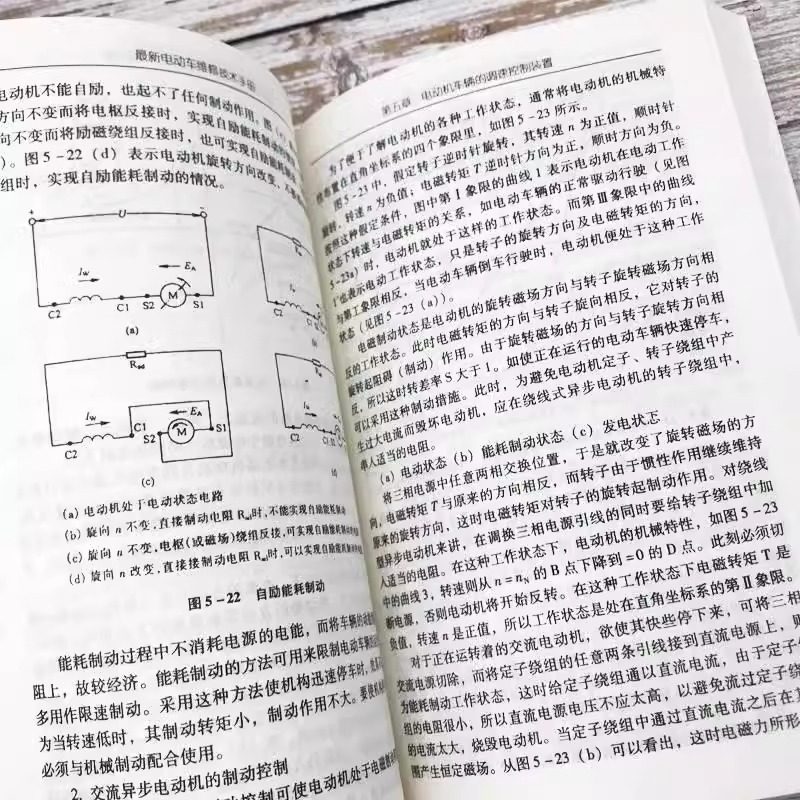 最新电动车维修技术手册
电动机不能自励，也起不了任何制动作用。图
方向不变而将电枢反接时，实现自励能耗制动
向不变而将励磁绕组反接时，也可实现自励能耗制动
）。图5-22（d）表示电动机旋转方向改变、
组时，实现自励能耗制动的情况。
+ U -
I_W E_A
C2 C1 S2 M S1
(a)
R_制
I_W E_A
C2 C1 S2 M S1
(c)
(a) 电动机处于电动状态电路
(b) 旋向 n 不变，直接制动电阻 R制时，不能实现自励能耗制动
(c) 旋向 n 不变，电枢(或磁场)绕组反接，可实现自励能耗制动
(d) 旋向 n 改变，直接接制动电阻 R制时，可以实现自励能耗制动
图5-22 自励能耗制动
能耗制动过程中不消耗电源的电能，而将车辆的
阻上，故较经济。能耗制动的方法可用来限制电动车辆
多用作限速制动。采用这种方法使机构迅速停车时，
为当转速低时，其制动转矩小，制动作用不大。要
必须与机械制动配合使用。
2. 交流异步电动机的制动控制
制动控制可使电动机处于电磁
第五章 电动机车辆的调速控制装置
为了便于了解电动机的各种工作状态，通常将电动机的机械特
性布置在直角坐标系的四个象限里，如图5-23所示。
图5-23中，假定转子逆时针旋转，其转速 n 为正值，顺时针
旋转，转速 n 为负值；电磁转矩 T 逆时针方向为正，顺时方向为负。
按照这种假定条件，图中第Ⅰ象限的曲线1表示电动机在电动工作
状态下转速与电磁转矩的关系，如电动车辆的正常驱动行驶（见图
5-23a）时，电动机就处于这样的工作状态。而第Ⅲ象限中的曲线
1'也表示电动工作状态，只是转子的旋转方向及电磁转矩的方向，
与第Ⅰ象限相反，当电动车辆倒车行驶时，电动机便处于这种工作
状态（见图5-23（a））。
电磁制动状态是电动机的旋转磁场方向与转子旋转磁场方向相
反的工作状态。此时电磁转矩的方向与转子旋向相反，它对转子的
旋转起阻碍（制动）作用。由于旋转磁场的方向与转子旋转方向相
反，所以这时转差率S大于1。如使正在运行的电动车辆快速停车，
可以采用这种制动措施。此时，为避免电动机定子、转子绕组中产
生过大电流而毁坏电动机，应在绕线式异步电动机的转子绕组中，
串入适当的电阻。
(a) 电动状态 (b) 能耗制动状态 (c) 发电状态
将三相电源中任意两相交换位置，于是就改变了旋转磁场的方
向，电磁转矩 T 与原来的方向相反，而转子由于惯性作用继续维持
原来的旋转方向，这时电磁转矩对转子的旋转起制动作用。对绕线
型异步电动机来讲，在调换三相电源引线的同时要给转子绕组中加
入适当的电阻。在这种工作状态下，电动机的机械特性，如图5-23
中的曲线3，转速则从 n=n_N 的 B 点下降到=0的 D 点。此刻必须切
断电源，否则电动机将开始反转。在这种工作状态下电磁转矩 T 是
负值，转速 n 是正值，所以工作状态是处在直角坐标系的第Ⅱ象限。
对于正在运转着的交流电动机，欲使其快些停下来，可将三相
交流电源切除，而将定子绕组的任意两条引线接到直流电源上，则
为能耗制动工作状态，这时给定子绕组通以直流电流，由于定子
组的电阻很小，所以直流电源电压不应太高，以避免流过定子绕
的电流太大，烧毁电动机。当定子绕组中通过直流电流之后在
图产生恒定磁场。从图5-23（b）可以看出，这时电磁力所形